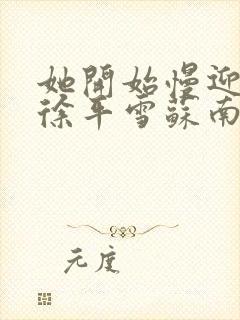 她開始慢迎
徐平雪蘇南
元度